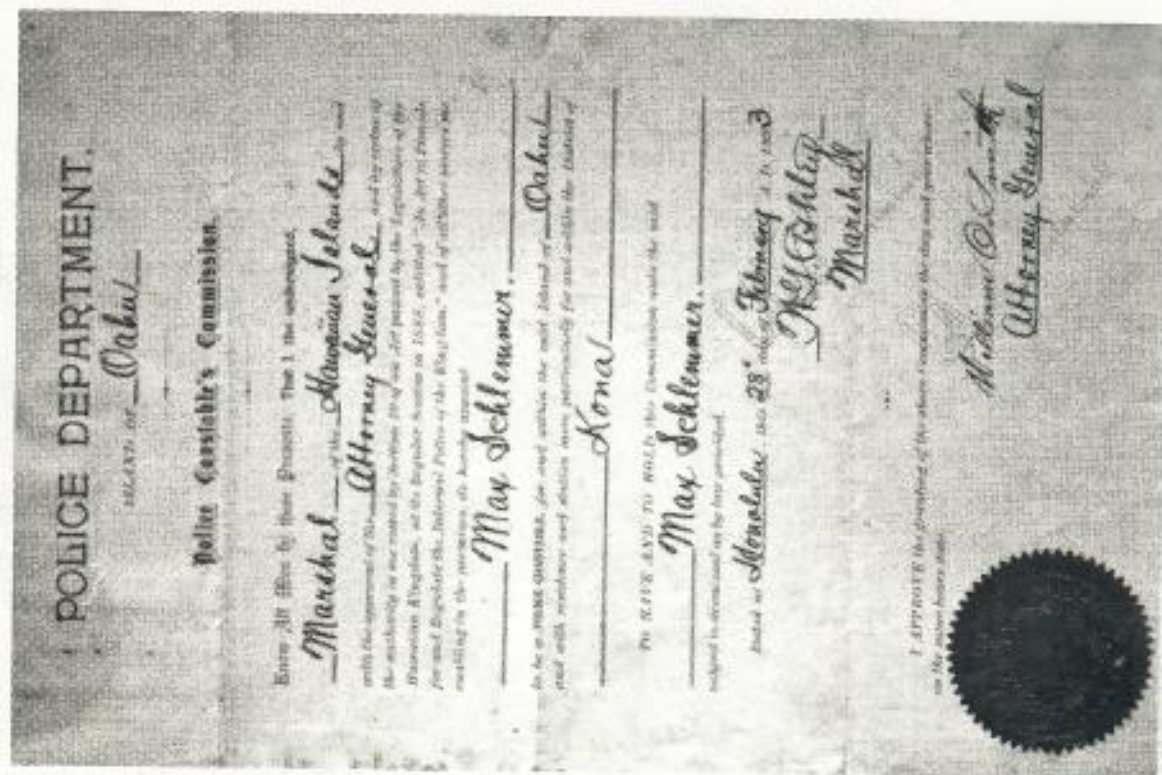 POLICE DEPARTMENT.
ISLAND OF Oahu
Police Constable's Commission.
Know All Men by these Presents, That I the undersigned,
Marshal of the Hawaiian Islands by and
with the approval of the Attorney General and by virtue of
the authority in me vested by Section of an Act passed by the Legislature of the
Hawaiian Kingdom, at its Regular Session in entitled "An Act to Provide
for and Regulate the Internal Police of the Kingdom," and of
enabling in the premises do hereby appoint
Max Schlemmer.
to be a POLICE CONSTABLE, for and within the said Island of Oahu
and with residence and duties more particularly for and within the District of
Kona
TO HAVE AND TO HOLD by this Commission unto the said
Max Schlemmer.
subject to as by law provided.
Dated at Honolulu this 28" day February A. D. 3
Ashley
Marshall
I APPROVE the granting of the above Commission the day and year
above
William O. Smith
Attorney General